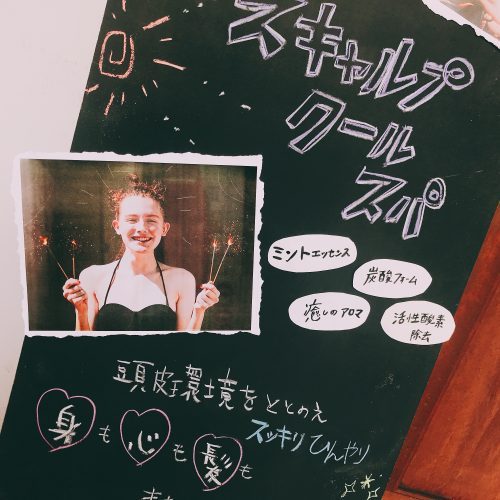 スキャルプ
クール
スパ
ミントエッセンス
炭酸フォーム
癒しのアロマ
活性酸素
除去
頭皮環境をととのえ
スッキリひんやり
身も心も髪も